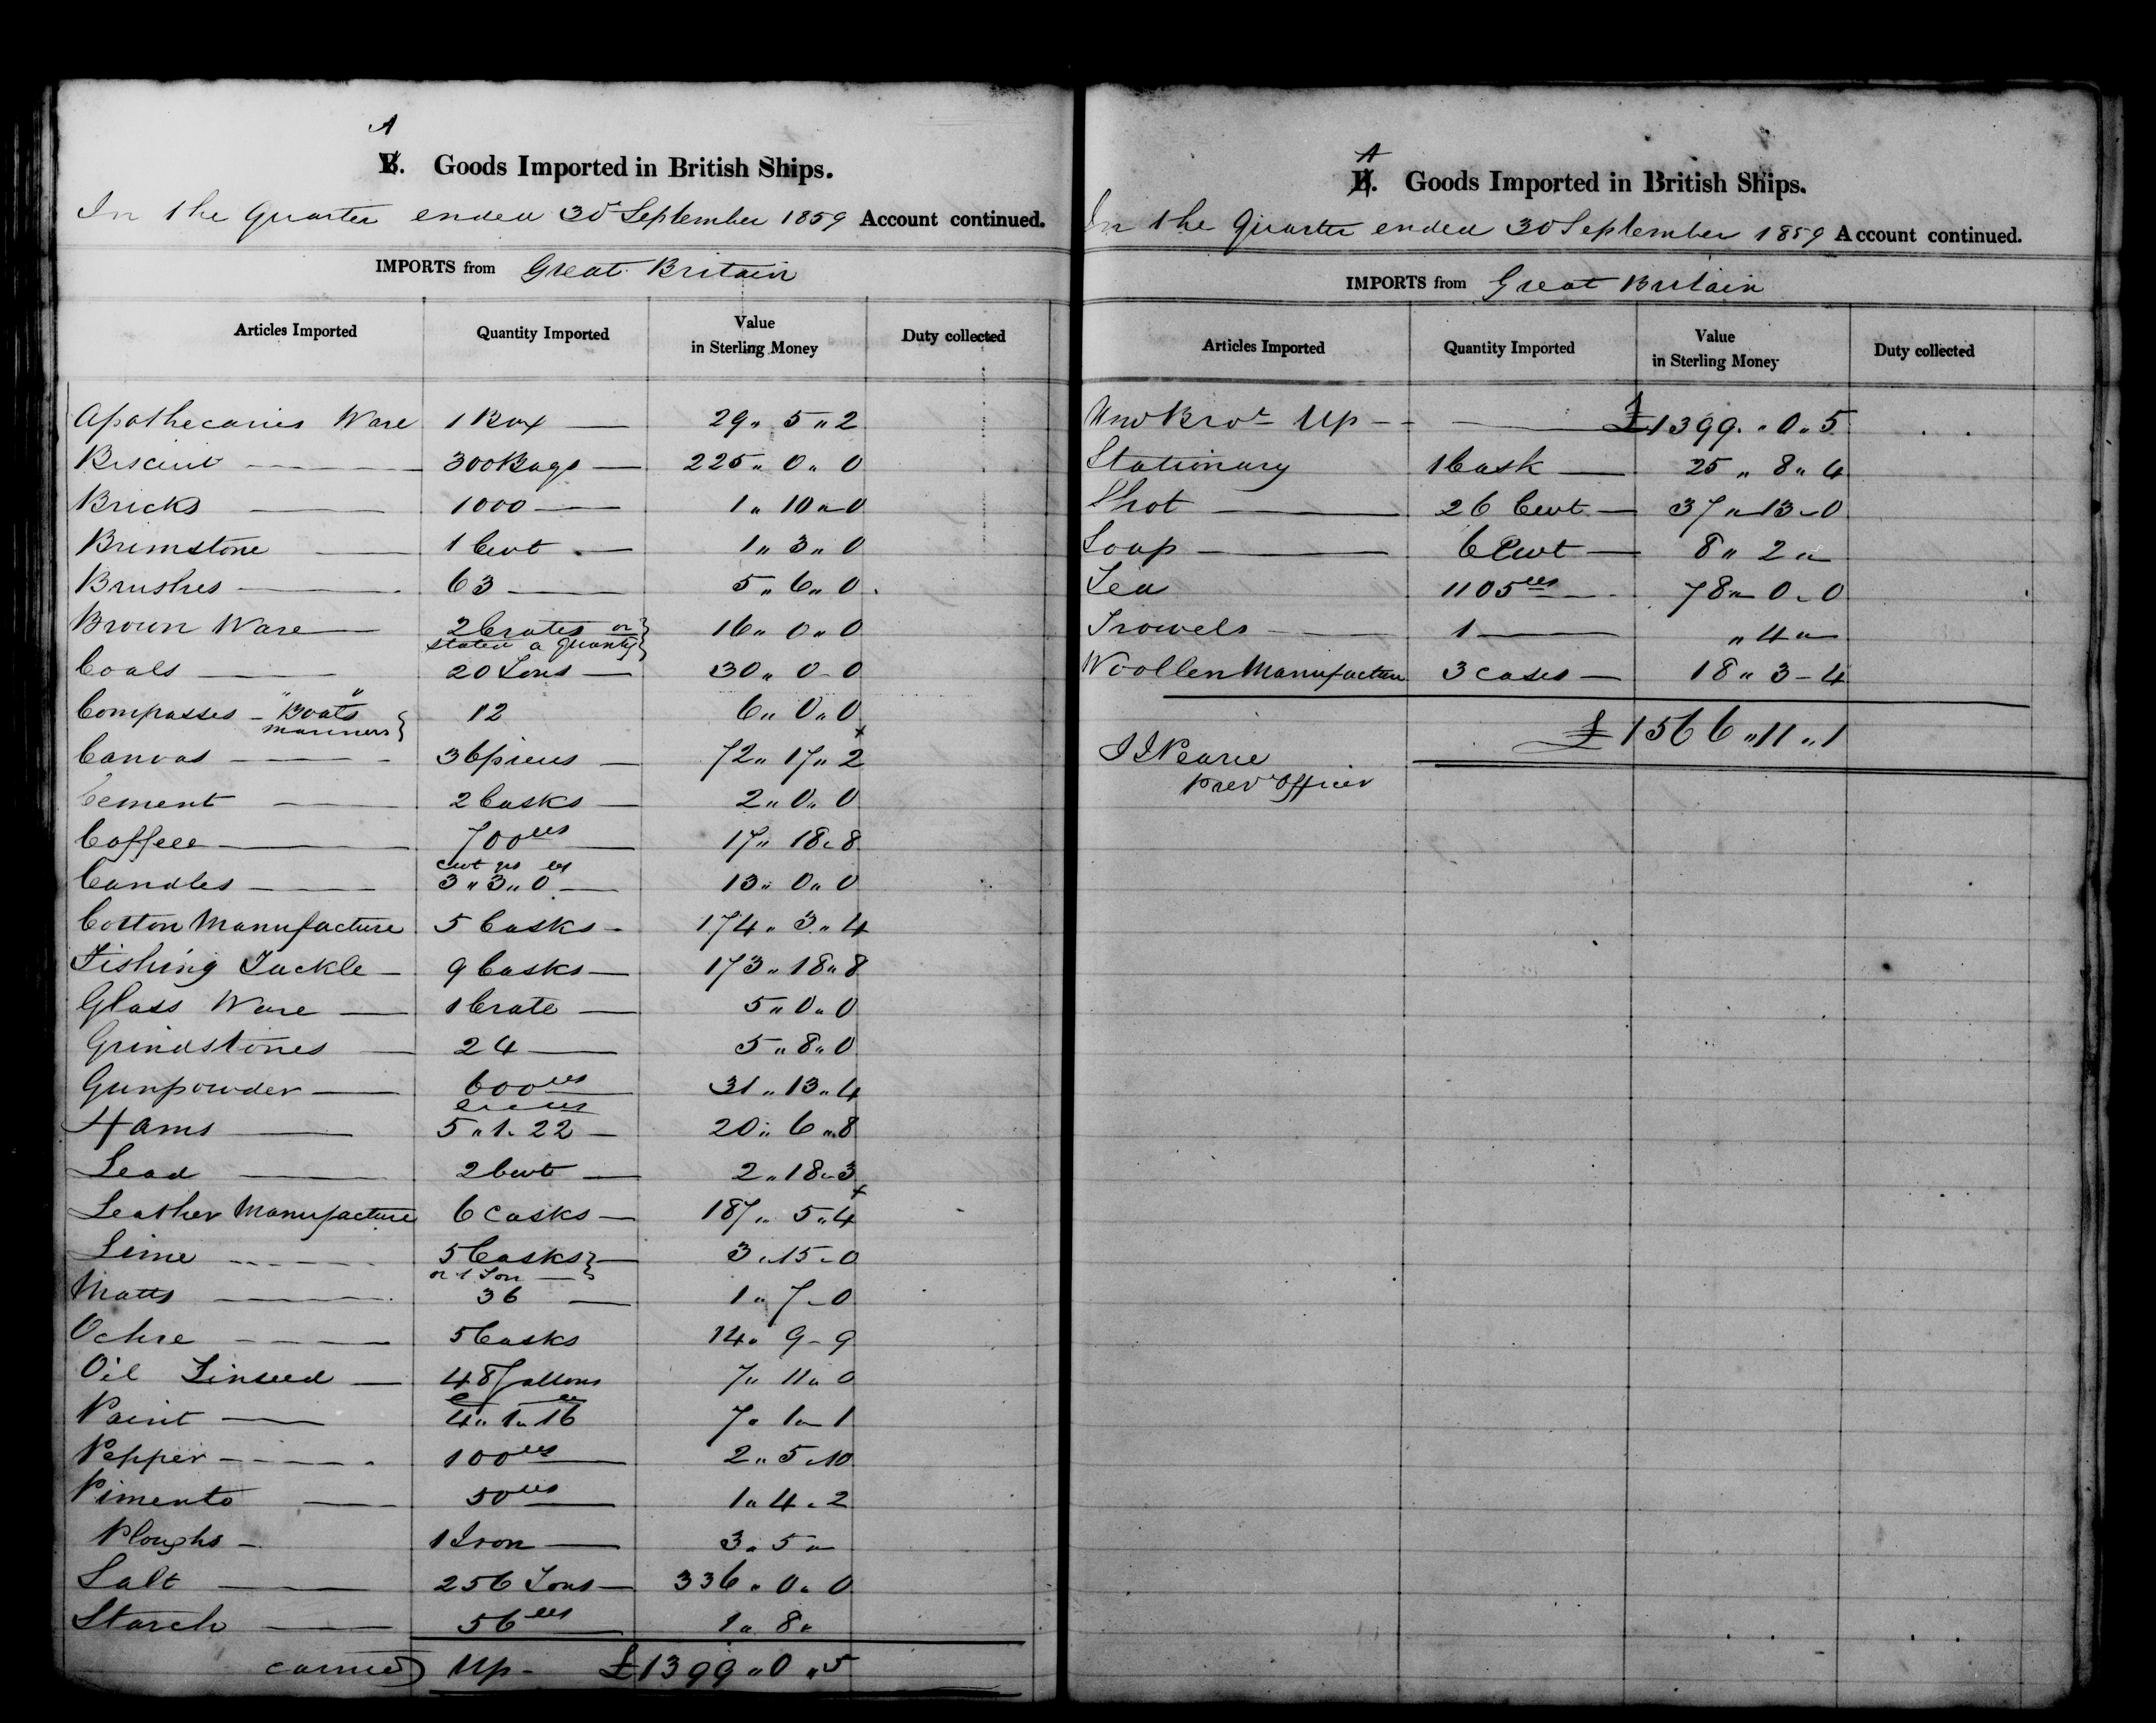 A
B. Goods Imported in British Ships.
In the Quarter ended 30 September 1859 Account continued.
IMPORTS from Great Britain
Articles Imported Quantity Imported Value in Sterling Money Duty collected
Apothecaries Ware 1 Box 29 " 5 " 2
Biscuit 300 Bags 225 " 0 " 0
Bricks 1000 1 " 10 " 0
Brimstone 1 Cwt 1 " 3 " 0
Brushes 63 5 " 6 " 0
Brown Ware 2 Crates or 16 " 0 " 0
stated a quantity
Coals 20 Tons 30 " 0 - 0
Compasses - "Boats" 12 6 " 0 " 0
mariners
Canvas 36 pieces 72 " 17 " 2
Cement 2 Casks 2 " 0 " 0
Coffeee 700 lbs 17 " 18 " 8
cwt qrs lbs
Candles 3 " 3 " 0 13 " 0 " 0
Cotton Manufacture 5 Casks 174 " 3 " 4
Fishing Tackle 9 Casks 173 " 18 " 8
Glass Ware 1 Crate 5 " 0 " 0
Grindstones 24 5 " 8 " 0
Gunpowder 600 lbs 31 " 13 " 4
Hams 5 " 1 " 22 20 " 6 " 8
Lead 2 Cwt 2 " 18 " 3
Leather Manufacture 6 Casks 187 " 5 " 4
Lime 5 Casks 3 " 15 - 0
or 1 Ton
Matts 36 1 " 7 - 0
Ochre 5 Casks 14 " 9 - 9
Oil Linseed 48 Gallons 7 " 11 " 0
Paint 4 " 1 " 16 7 " 1 " 1
Pepper 100 lbs 2 " 5 " 10
Pimento 50 lbs 1 " 4 " 2
Ploughs 1 Iron 3 " 5 "
Salt 256 Tons 336 " 0 " 0
Starch 56 lbs 1 " 8 "
carried Up - £1399 " 0 " 5
A
B. Goods Imported in British Ships.
In the Quarter ended 30 September 1859 Account continued.
IMPORTS from Great Britain
Articles Imported Quantity Imported Value in Sterling Money Duty collected
Bro't Up £1399 " 0 " 5
Stationary 1 Cask 25 " 8 " 4
Shot 26 Cwt 37 " 13 - 0
Soap 6 Cwt 8 " 2 "
Tea 1105 lbs 78 " 0 - 0
Trowels 1 " 4 "
Woollen Manufacture 3 cases 18 " 3 - 4
£1566 " 11 " 1
Prev Officer